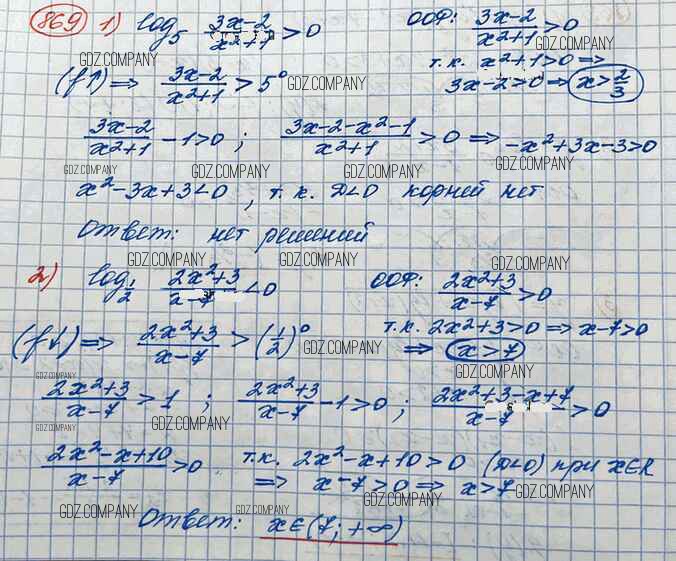 869 1) log₅ (3x-2)/(x²+1) > 0 ООФ: (3x-2)/(x²+1) > 0
GDZ.COMPANY GDZ.COMPANY
т.к. x²+1>0 =>
(f↑) => (3x-2)/(x²+1) > 5⁰ 3x-2>0 => x>2/3
GDZ.COMPANY GDZ.COMPANY
(3x-2)/(x²+1) - 1 > 0 ; (3x-2-x²-1)/(x²+1) > 0 => -x²+3x-3>0
GDZ.COMPANY GDZ.COMPANY GDZ.COMPANY GDZ.COMPANY
x²-3x+3<0, т.к. D<0 корней нет
Ответ: нет решений
GDZ.COMPANY GDZ.COMPANY GDZ.COMPANY
2) log₁/₂ (2x²+3)/(x-7) < 0 ООФ: (2x²+3)/(x-7) > 0
т.к. 2x²+3>0 => x-7>0
(f↓) => (2x²+3)/(x-7) > (1/2)⁰ => x>7
GDZ.COMPANY GDZ.COMPANY
GDZ.COMPANY
(2x²+3)/(x-7) > 1 ; (2x²+3)/(x-7) - 1 > 0 ; (2x²+3-x+7)/(x-7) > 0
GDZ.COMPANY GDZ.COMPANY
(2x²-x+10)/(x-7) > 0 т.к. 2x²-x+10>0 (D<0) при x∈R
=> x-7>0 => x>7
GDZ.COMPANY GDZ.COMPANY GDZ.COMPANY
Ответ: x∈(7; +∞)